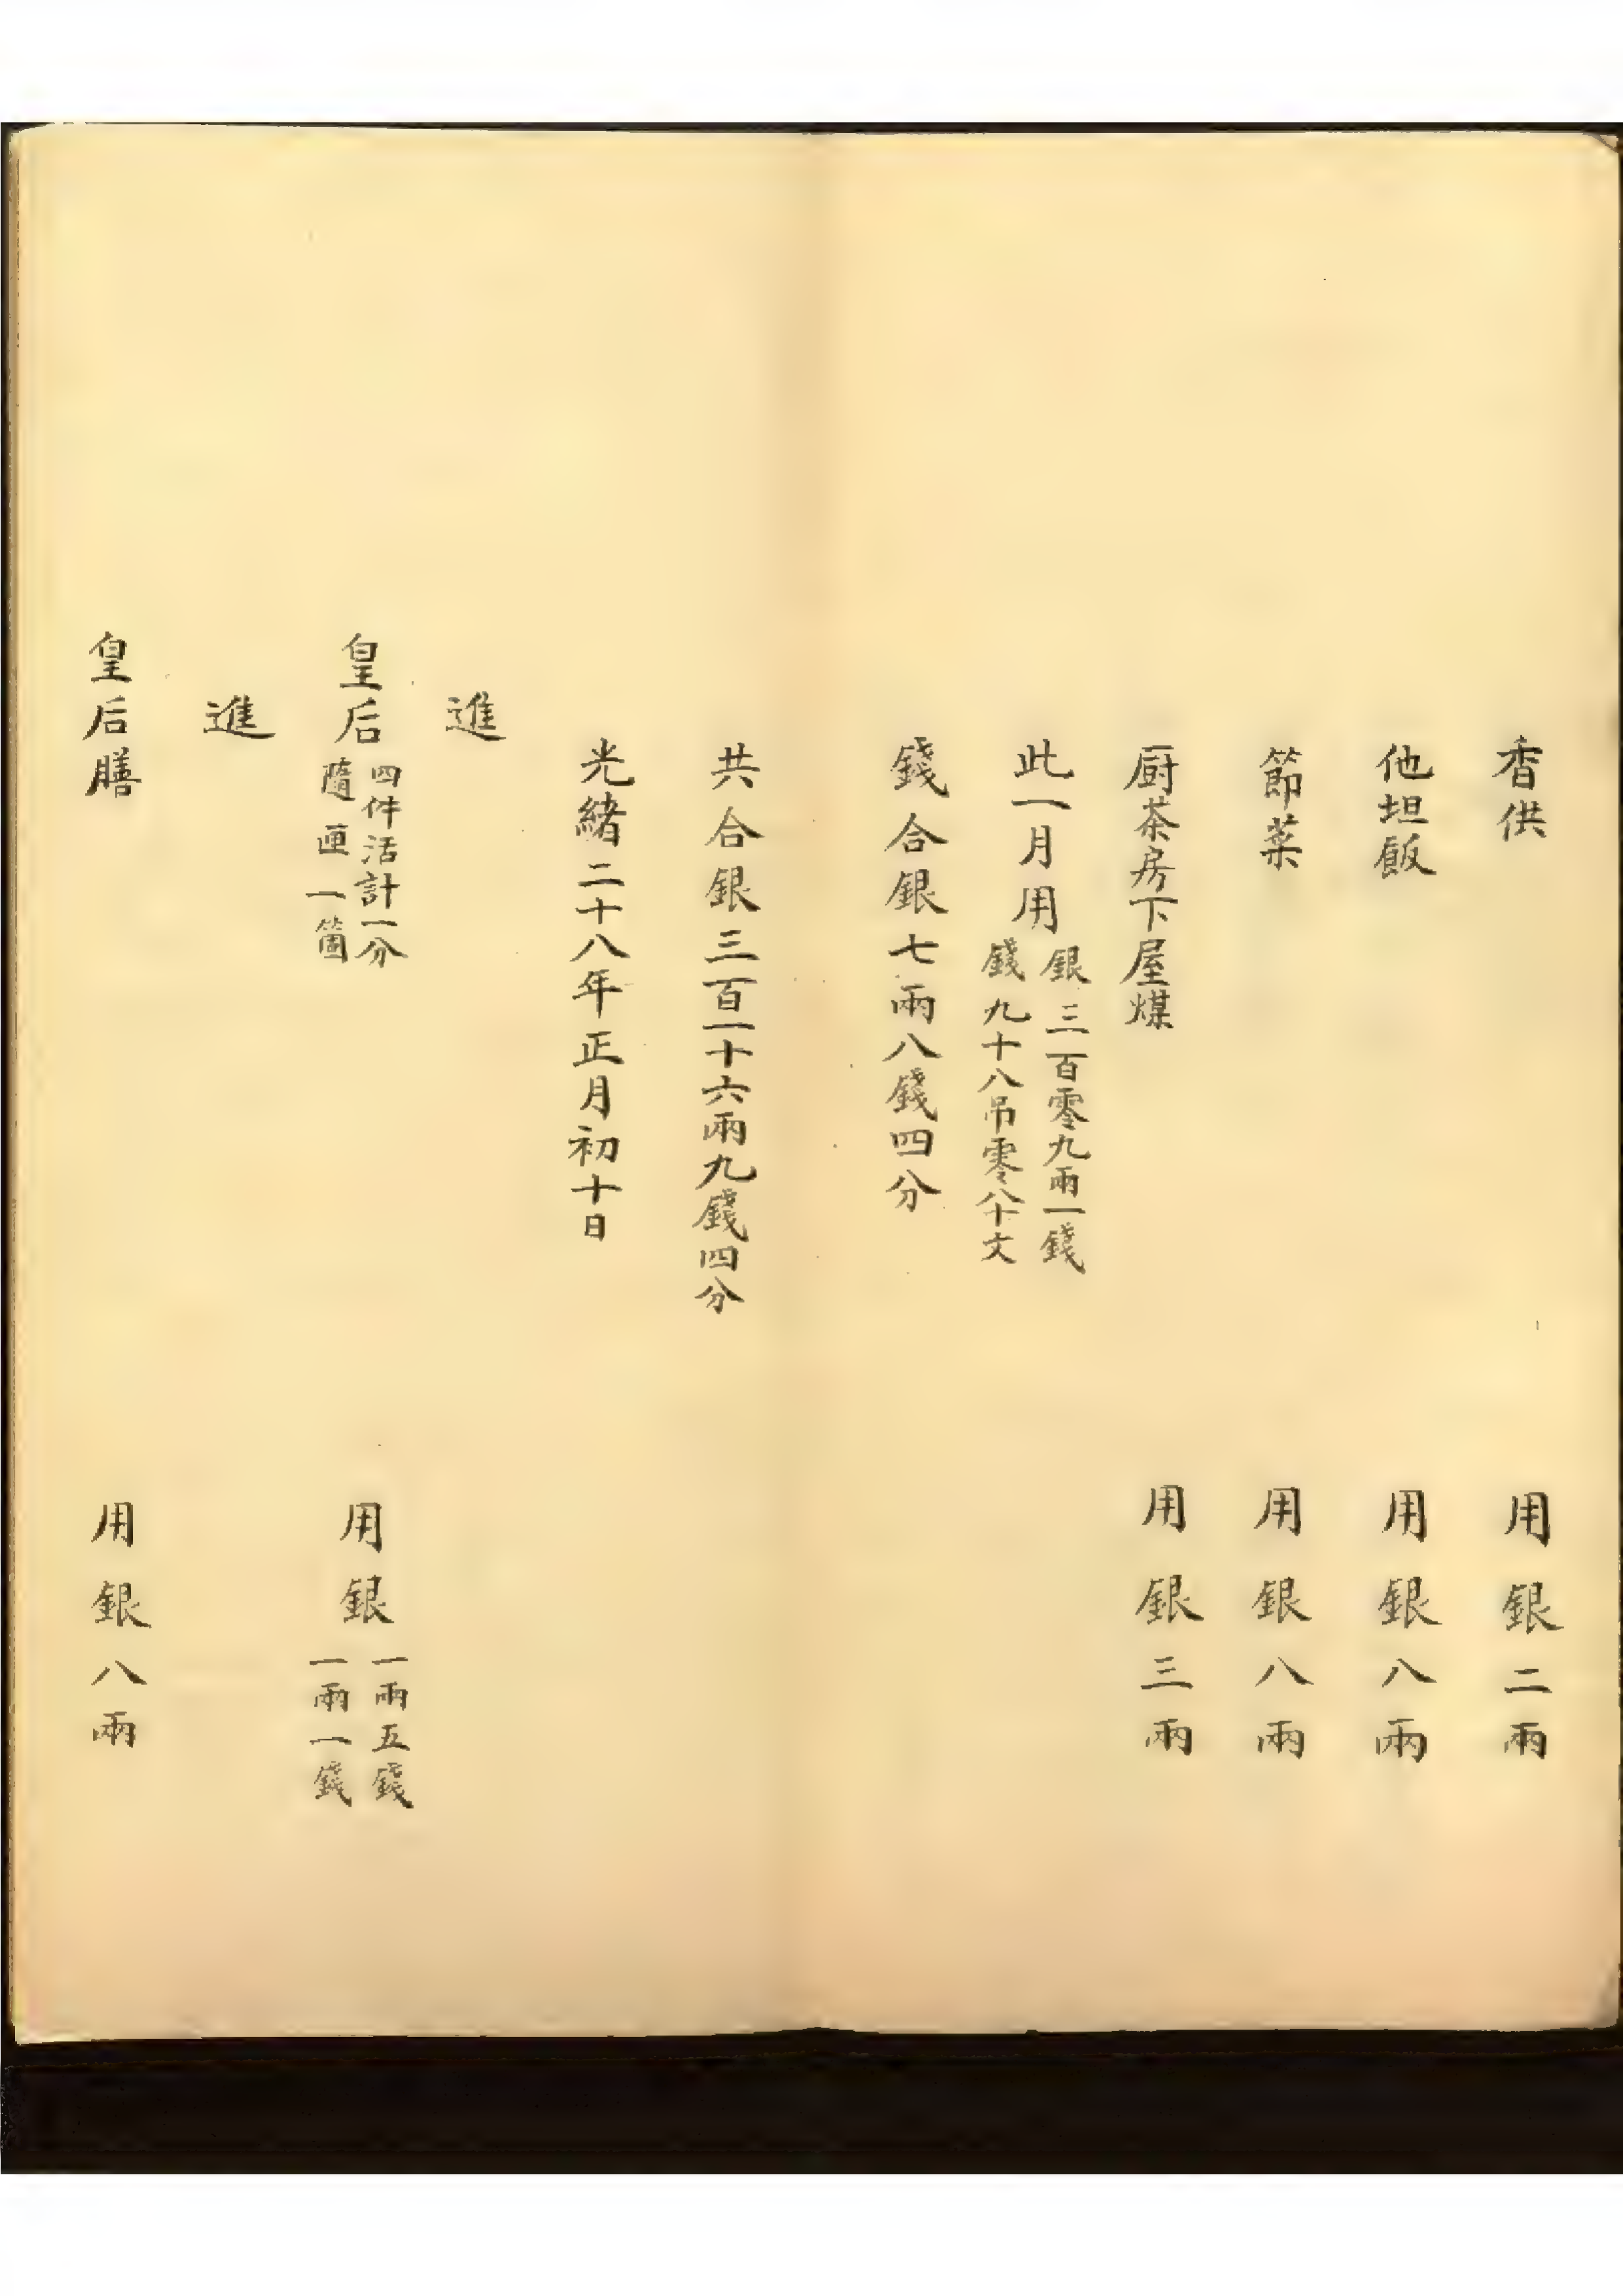 香供 用銀二兩
他坦飯 用銀八兩
節菜 用銀八兩
厨茶房下屋煤 用銀三兩
此一月用 銀三百零九兩一錢
錢九十八吊零八十文
錢合銀七兩八錢四分
共合銀三百一十六兩九錢四分
光緒二十八年正月初十日
進
皇后 四件活計一分 用銀 一兩五錢
隨匣一箇 一兩一錢
進
皇后膳 用銀八兩